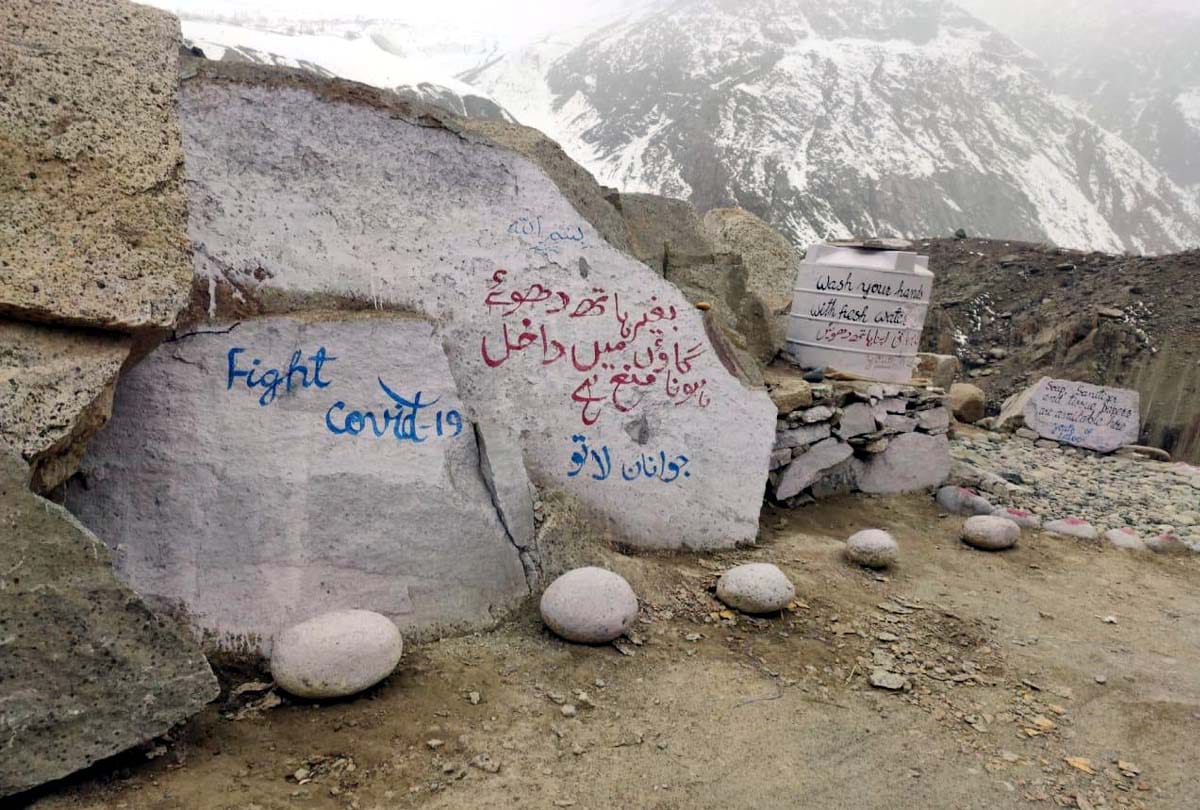 Fight
Covid-19
بسم الله
بغیر ہاتھ دھوئے
گاؤں میں داخل
ہونا منع ہے
جوانان لاتو
Wash your hands
with fresh water
ہاتھ دھوئیں
Soap, Sanitizer
and tissue papers
are available here
youth of